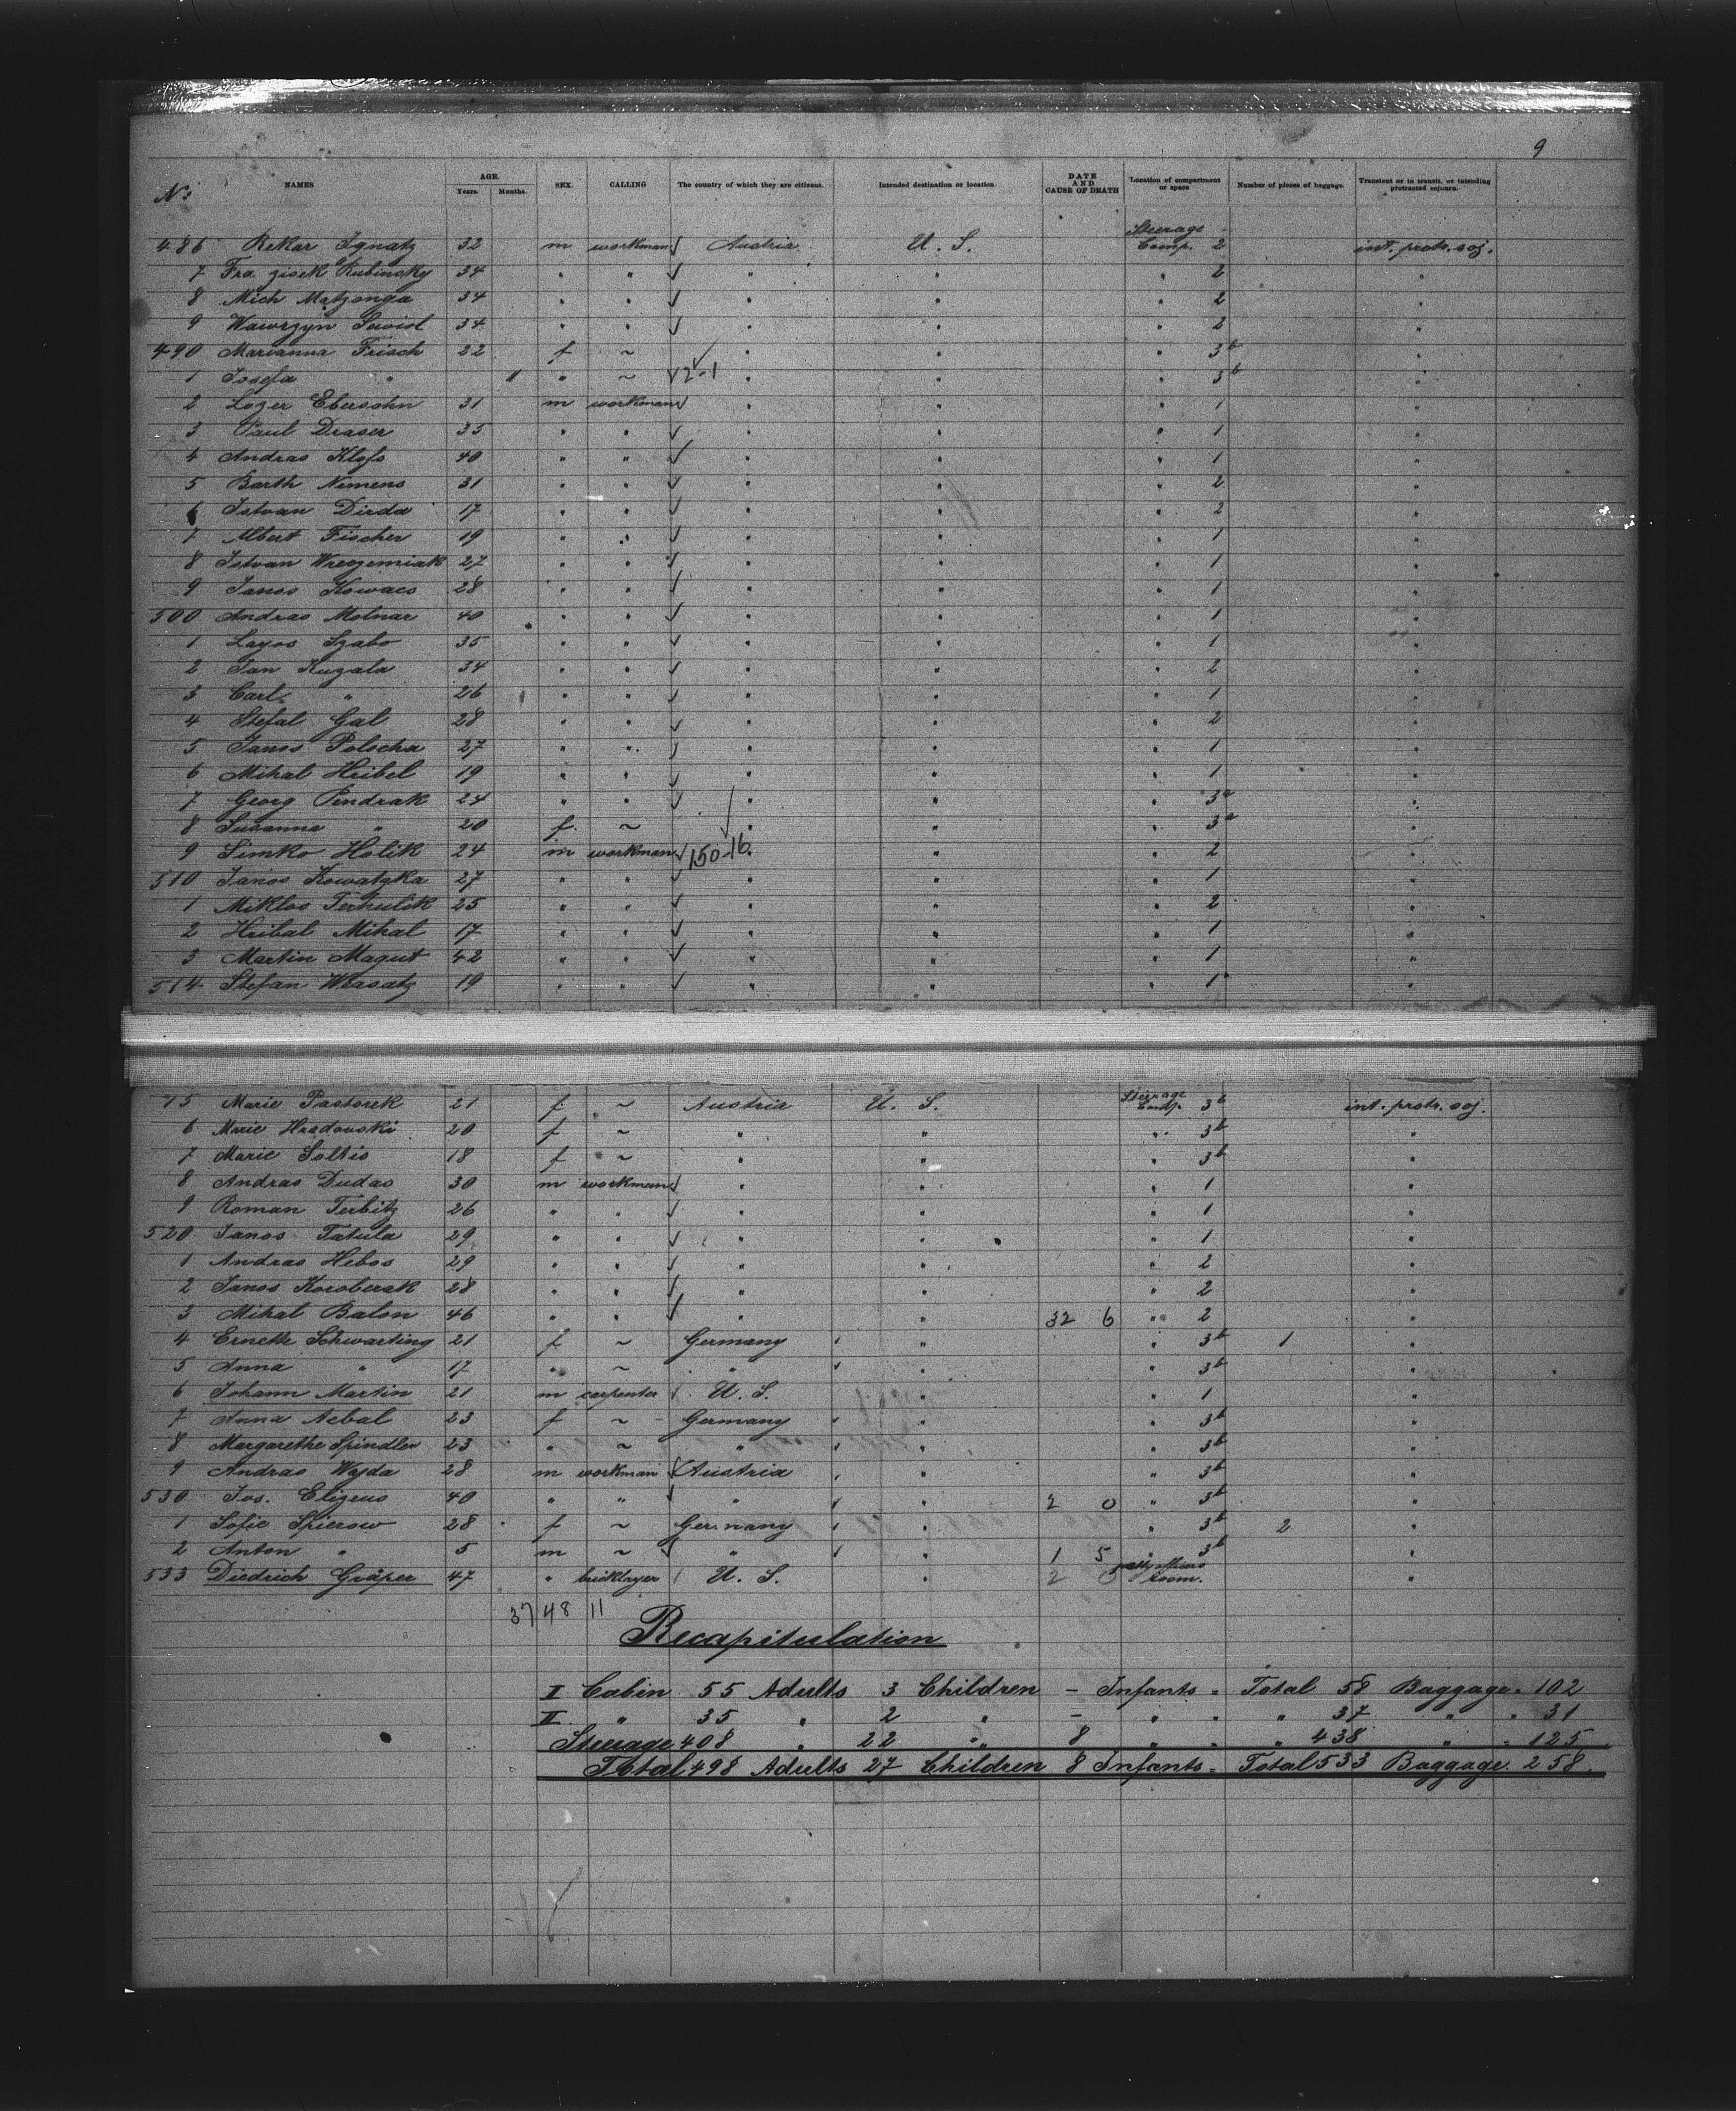 9
No NAMES AGE. Years. Months. SEX. CALLING The country of which they are citizens. Intended destination or location DATE AND CAUSE OF DEATH Location of compartment or space Number of pieces of baggage. Transient or in transit, or intending protracted sojourn.
486 Rekar Ignatz 32 m workman ✓ Austria U. S. Steerage Comp. 2 int. protr. soj.
7 Fra zisek Rubinsky 34 " " ✓ " " " 2 "
8 Mich Matzonga 34 " " ✓ " " " 2 "
9 Wawrzyn 34 " " ✓ " " " 2 "
490 Marianna Frisch 22 f ~ " " " 3b "
1 Josefa " " ~ ✓ 2-1 " " " 3b "
2 Lozer Ebersohn 31 m workman ✓ " " " 1 "
3 Paul Draser 35 " " ✓ " " " 1 "
4 Andras Klofs 40 " " ✓ " " " 1 "
5 Barth Nemens 31 " " ✓ " " " 2 "
6 Istvan Dirda 17 " " ✓ " " " 2 "
7 Albert Fischer 19 " " ✓ " " " 1 "
8 Istvan 27 " " ✓ " " " 1 "
9 Janos Kowacs 28 " " ✓ " " " 1 "
500 Andras Molnar 40 " " ✓ " " " 1 "
1 Layos Szabo 35 " " ✓ " " " 1 "
2 Jan Kuzala 34 " " ✓ " " " 2 "
3 Carl " 26 " " ✓ " " " 1 "
4 Stefal Gal 28 " " ✓ " " " 2 "
5 Janos Polocha 27 " " ✓ " " " 1 "
6 Mihal Hribel 19 " " ✓ " " " 1 "
7 Georg Pendrak 24 " " ✓ " " " 3a "
8 Susanna " 20 f. ~ " " " 3a "
9 Simko Holik 24 m workman ✓ 150-16 " " " 2 "
510 Janos Kowatzka 27 " " ✓ " " " 1 "
1 Miklos Terhulik 25 " " ✓ " " " 2 "
2 Hribal Mihal 17 " " ✓ " " " 1 "
3 Martin Magut 42 " " ✓ " " " 1 "
514 Stefan 19 " " ✓ " " " 1 "
15 Marie Pastorek 21 f ~ Austria U. S. Steerage Comp. 3b int. protr. soj.
6 Marie Hradovski 20 f ~ " " " 3b "
7 Marie Soltis 18 f ~ " " " 3b "
8 Andras Dudas 30 m workman ✓ " " " 1 "
9 Roman Terbitz 26 " " ✓ " " " 1 "
520 Janos Tatula 29 " " ✓ " " " 1 "
1 Andras Hebos 29 " " ✓ " " " 2 "
2 Janos Koroberak 28 " " ✓ " " " 2 "
3 Mihal Balon 46 " " ✓ " " 32 6 " 2 "
4 Ernette Schwarting 21 f ~ Germany " " 3b 1 "
5 Anna " 17 " ~ " " " 3b "
6 Johann Martin 21 m carpenter U. S. " " 1 "
7 Anna Nebal 23 f ~ Germany " " 3b "
8 Margarethe Spindler 23 " ~ " " " 3b "
9 Andras Wajda 28 m workman ✓ Austria " " 3b "
530 Jos. Elizeus 40 " " ✓ " " 2 0 " 3b "
1 Sofie Spierow 28 f ~ Germany " " 3b 2 "
2 Anton " 5 m ~ ✓ " " 1 5 " 3b "
533 Diedrich Gräper 47 " bricklayer U. S. " 2 0 officers room. "
37 48 11
Recapitulation
I Cabin 55 Adults 3 Children - Infants = Total 58 Baggage = 102
II " 35 " 2 " - " " " 37 " " 31
Steerage 408 " 22 " 8 " " " 438 " " 125
Total 498 Adults 27 Children 8 Infants = Total 533 Baggage. 258.